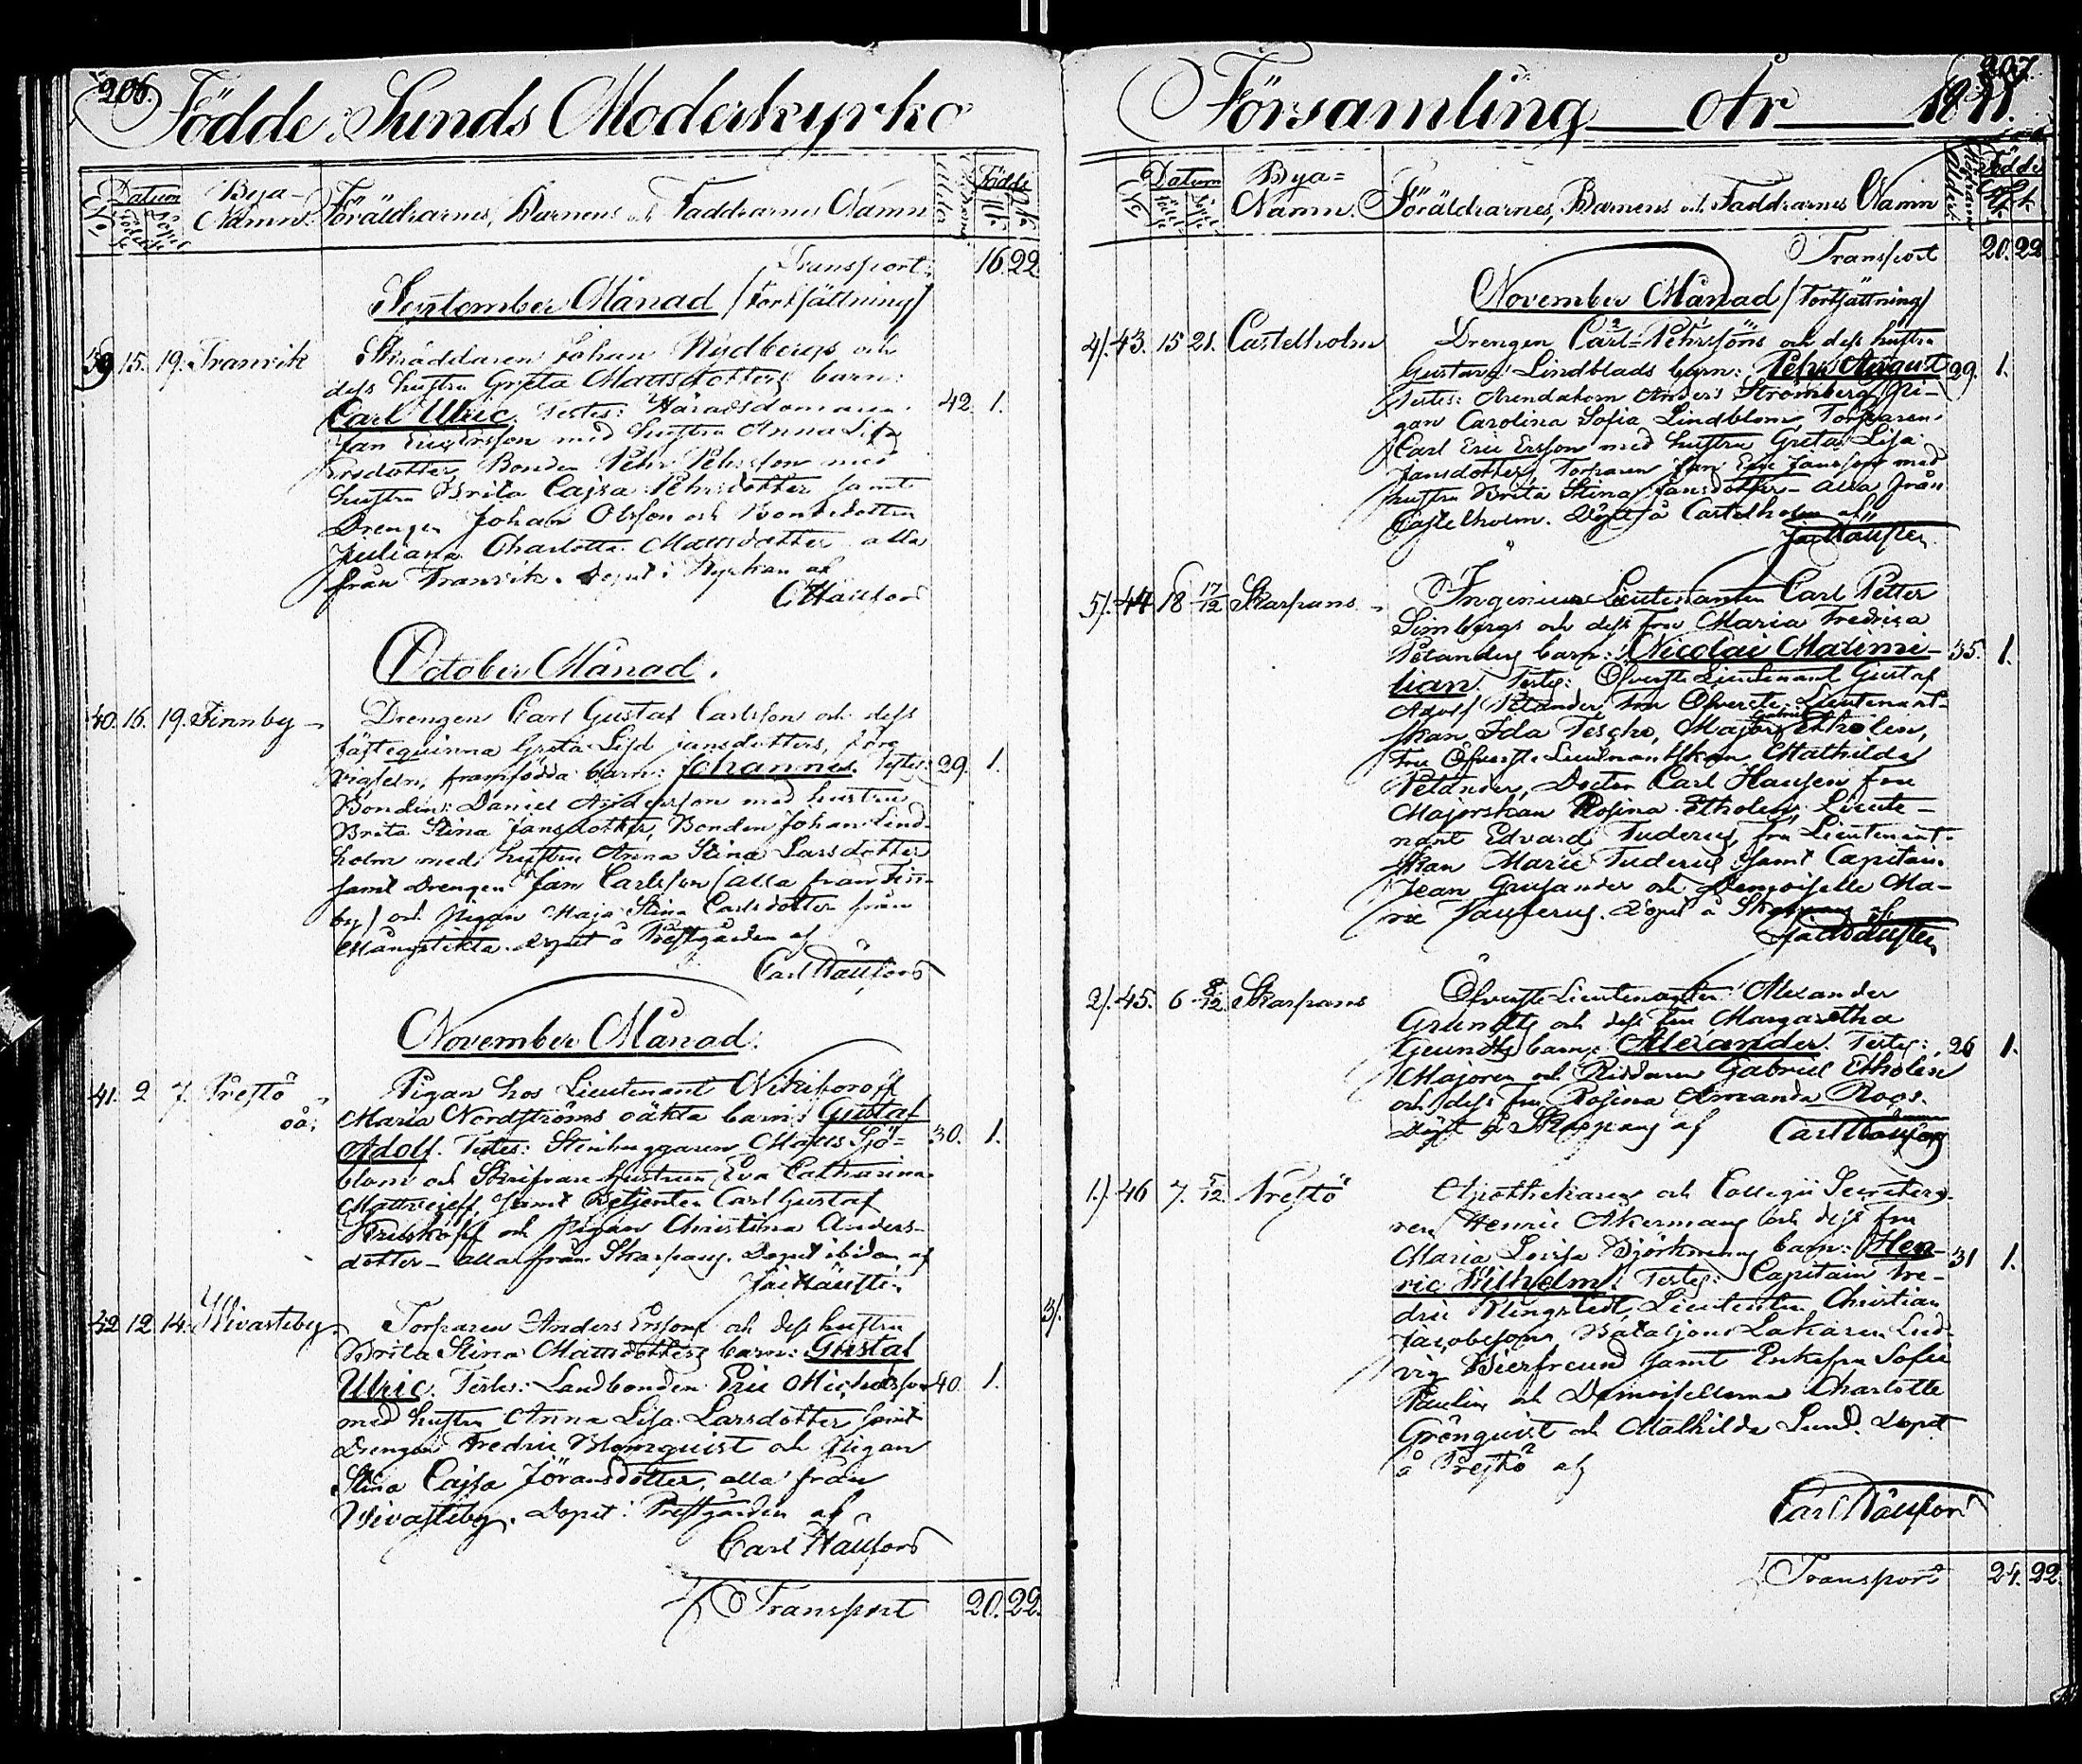 206.
Födde i Sunds Moderkyrko
No
Datum
Födelse
Döpelse
Bya-
Namn.
Föräldrarnes, Barnens och Faddrarnes Namn
Ålder
Födde
Transport: 16. 22.
September Månad (Fortsättning)
39 15. 19. Tranvik
Skräddaren Johan Rydbergs och
dess hustru Greta Mattsdotters barn:
Carl Ulric. Testes: Häradsdomaren 42. 1.
Jan Eric Ersson med hustru Anna Lisa
Ersdotter, Bonden Pehr Pehrsson med
hustru Brita Cajsa Pehrsdotter samt
Drengen Johan Olsson och Bondedottren
Juliana Charlotta Mattsdotter alla
från Tranvik. Döpt i Kyrkan af
October Månad.
40. 16. 19. Finnby
Drengen Carl Gustaf Carlsson och dess
fästequinna Greta Lisa Jansdotters, före
vigseln, framfödda barn: Johannes. Testes: 29. 1.
Bonden Daniel Andersson med hustru
Brita Stina Jansdotter, Bonden Johan Lind-
holm med hustru Anna Stina Larsdotter
samt Drengen Jan Carlsson (alla från Finn-
by) och Pigan Maja Stina Carlsdotter från
Mångstekta. Döpt å Prestgården af
Carl
November Månad.
41. 2 7. Prestö
oä:
Pigan hos Lieutenant Nikiforoff
Maria Nordströms oäkta barn: Gustaf
Adolf. Testes: Stenhuggaren Matts Sjö= 30. 1.
blom och Skrifvare hustrun Eva Catharina
Mattvejeff, samt Betjenten Carl Gustaf
och Pigan Christina Anders-
dotter - alla från Skarpans. Döpt ibidem af
42 12 14. Wivasteby
Torparen Anders Erssons och dess hustru
Brita Stina Mattsdotters barn: Gustaf
Ulric. Testes: Landbonden Eric Michelsson 40. 1.
med hustru Anna Lisa Larsdotter samt
Drengen Fredric Blomquist och Pigan
Stina Cajsa Jöransdotter, alla från
Wivasteby. Döpt i Prestgården af
Carl
Transport 20. 22.
207.
Församling År
No
Datum
Bya=
Namn.
Föräldrarnes, Barnens och Faddrarnes Namn
Ålder
Födde
Transport 20. 22
November Månad (Fortsättning)
4). 43. 15 21. Castelholm
Drengen Carl Pehrssons och dess hustru
Gustava Lindblads barn: Pehr August 29. 1.
Testes: Arendatorn Anders Strömberg, Pi-
gan Carolina Sofia Lindblom, Torparen
Carl Eric Ersson med hustru Greta Lisa
Jansdotter, Torparen Jan Eric Jansson med
hustru Brita Stina Jansdotter - alla från
Castelholm. Döpt å Castelholm af
5). 44 18 17/12 Skarpans
Ingenieur Lieutenanten Carl Petter
Simbergs och dess fru Maria Fredrica
Petanders barn: Nicolai Maximi- 35. 1.
lian. Testes: Öfverste Lieutenant Gustaf
Adolf Petander, Fru Öfverste Lieutenant-
skan Ida Tesche, Major Gabriel Etholén,
Fru Öfverste Lieutenantskan Mathilda
Petander, Doctor Carl Hausen, fru
Majorskan Rosina Etholén, Lieute-
nant Edvard Tuderus, fru Lieutenant-
skan Marie Tuderus samt Capitain
Jean och Demoiselle Ma-
rie Döpt å Skarpans af
2). 45. 6 8/12 Skarpans
Öfverste Lieutenanten Alexander
Grundts och dess Fru Margaretha
Grundts barn: Alexander. Testes: 26 1.
Majoren och Riddaren Gabriel Etholén
och dess fru Rosina Amanda Roos.
Döpt å Skarpans af Carl
1). 46 7. 7/12. Prestö
Apothekaren och Collegii Secretera-
ren Henric Åkermans och dess fru
Maria Lovisa Björkmans barn: Hen- 31 1.
ric Wilhelm. Testes: Capitain Fre-
dric Klingstedt, Lieutenanten Christian
Jacobsson, Bataljons Läkaren Lud-
vig Bierfreund samt Enkefru Sofie
Paulin och Demoisellerna Charlotte
Grönquist och Mathilda Lund. Döpt
å Prestö af
Carl
3).
Transport 24. 22.